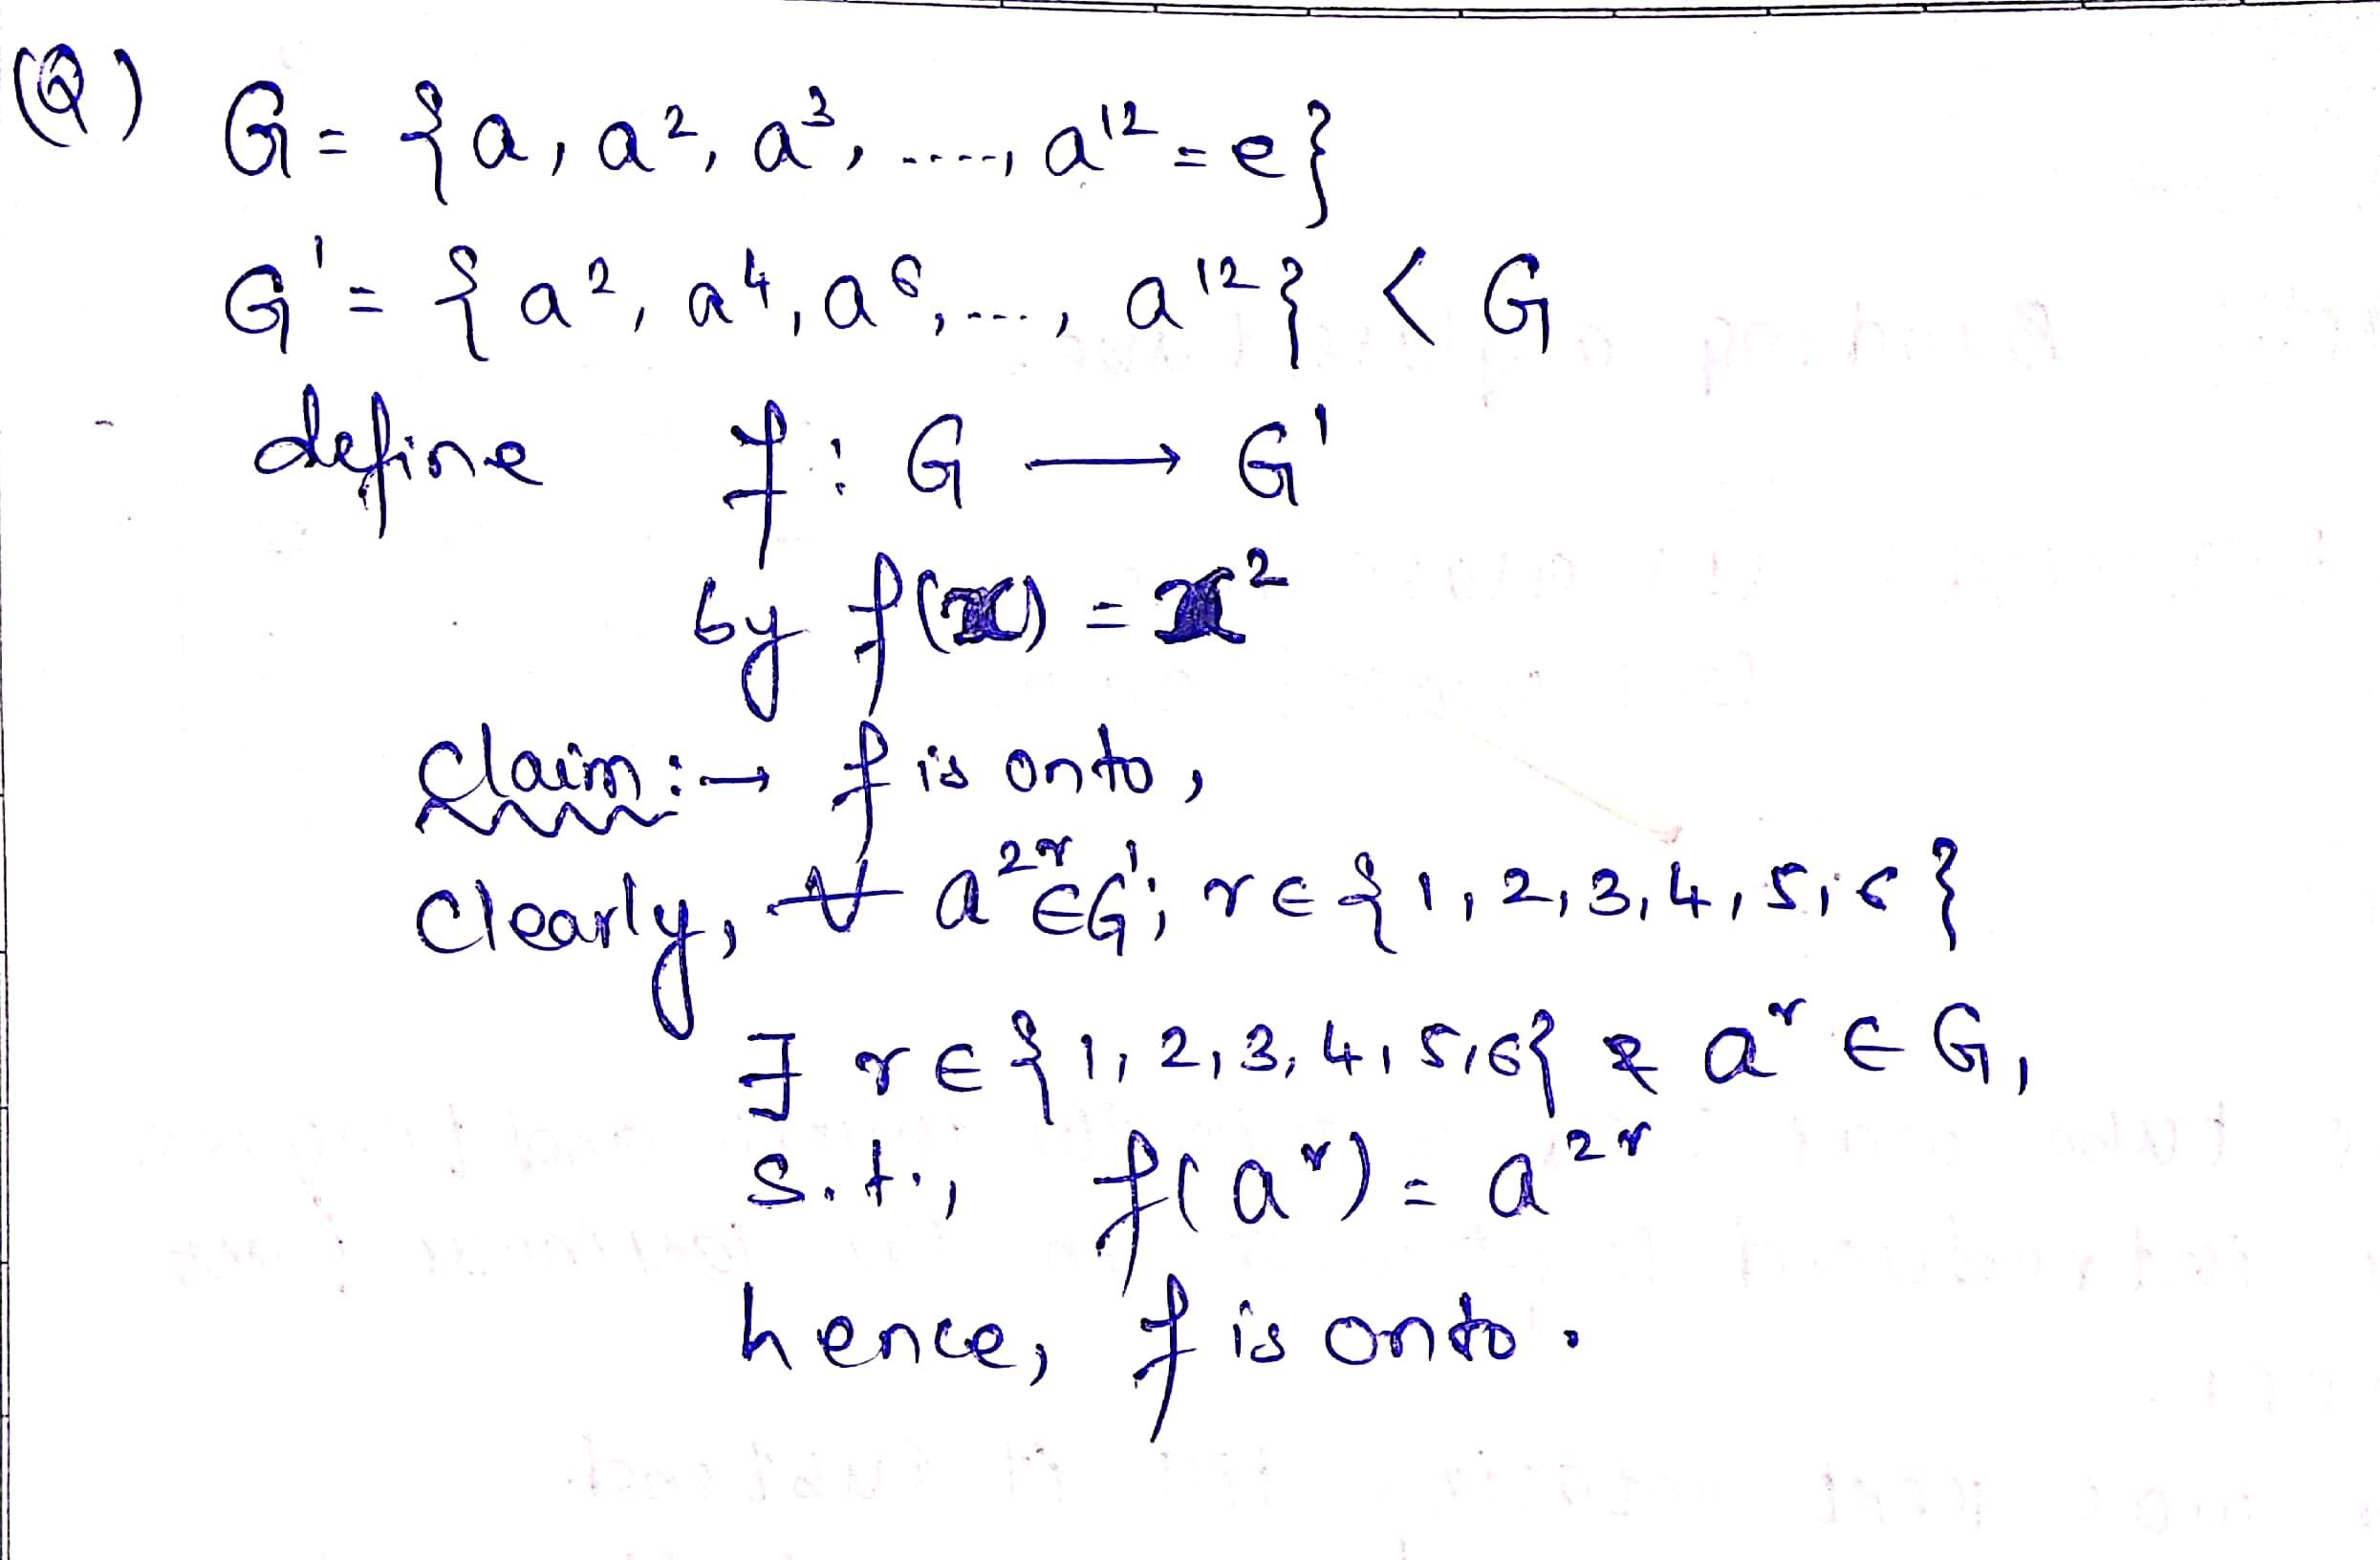 (Q) G = {a, a², a³, ....., a¹² = e}
G' = {a², a⁴, a⁶, ...., a¹²} < G
define f : G → G'
by f(x) = x²
Claim :→ f is onto,
Clearly, ∀ a²ʳ ∈ G' ; r ∈ {1, 2, 3, 4, 5, 6}
∃ r ∈ {1, 2, 3, 4, 5, 6} & aʳ ∈ G,
s.t., f(aʳ) = a²ʳ
hence, f is onto.